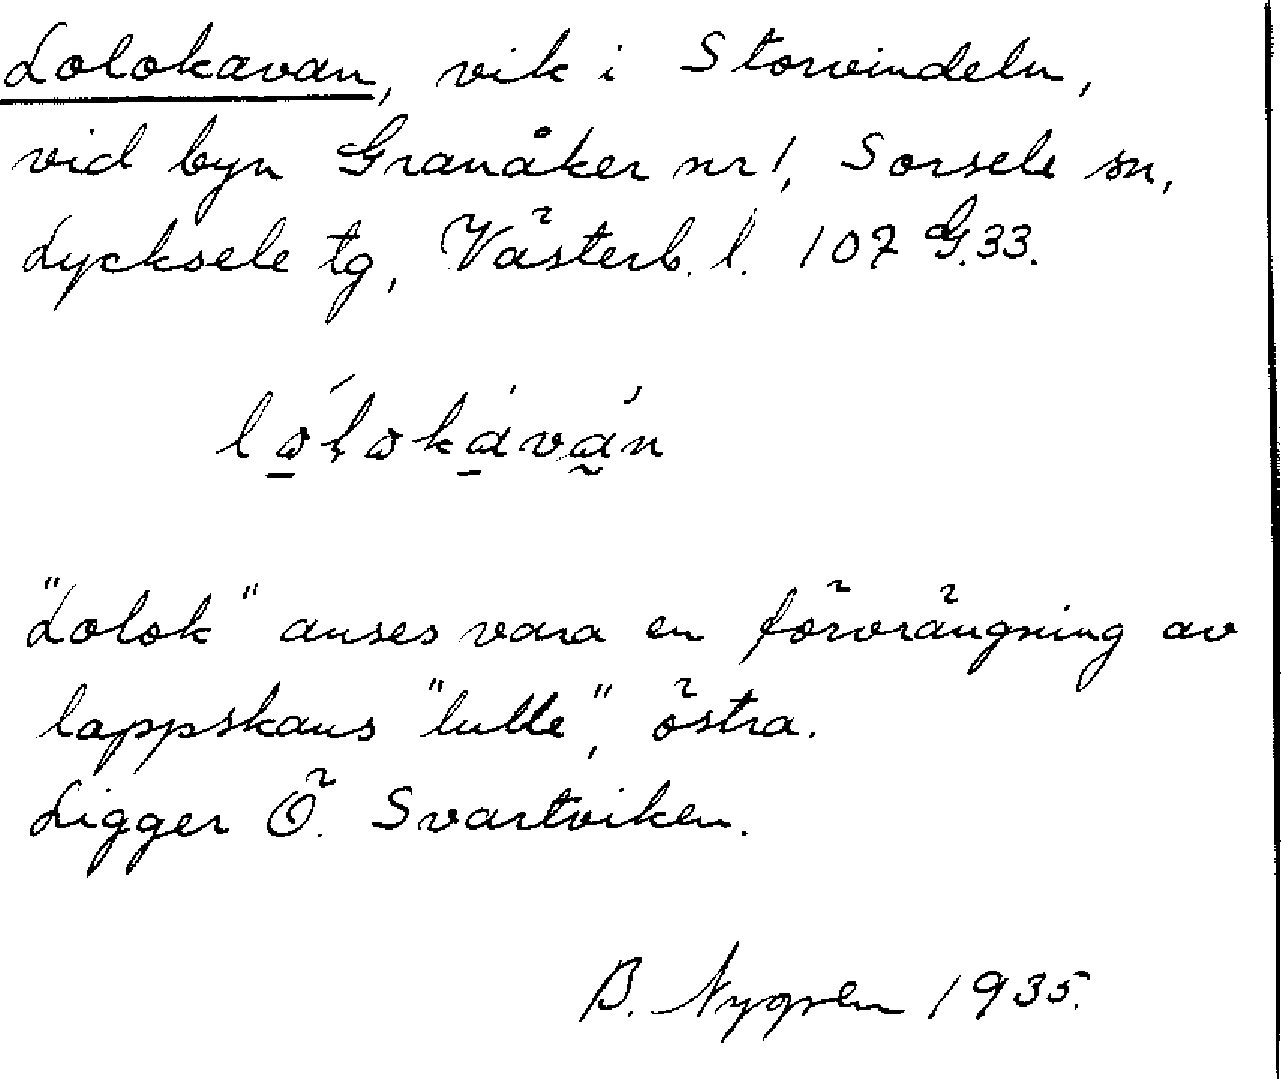 Lolokavan, vik i Storvindeln,
vid byn Granåker nr 1, Sorsele sn,
Lycksele tg, Västerb. l. 107 G.33.
lólokàván
"Lolok" anses vara en förvrängning av
lappskans "lulle", östra.
Ligger Ö. Svartviken.
B. Nygren 1935.